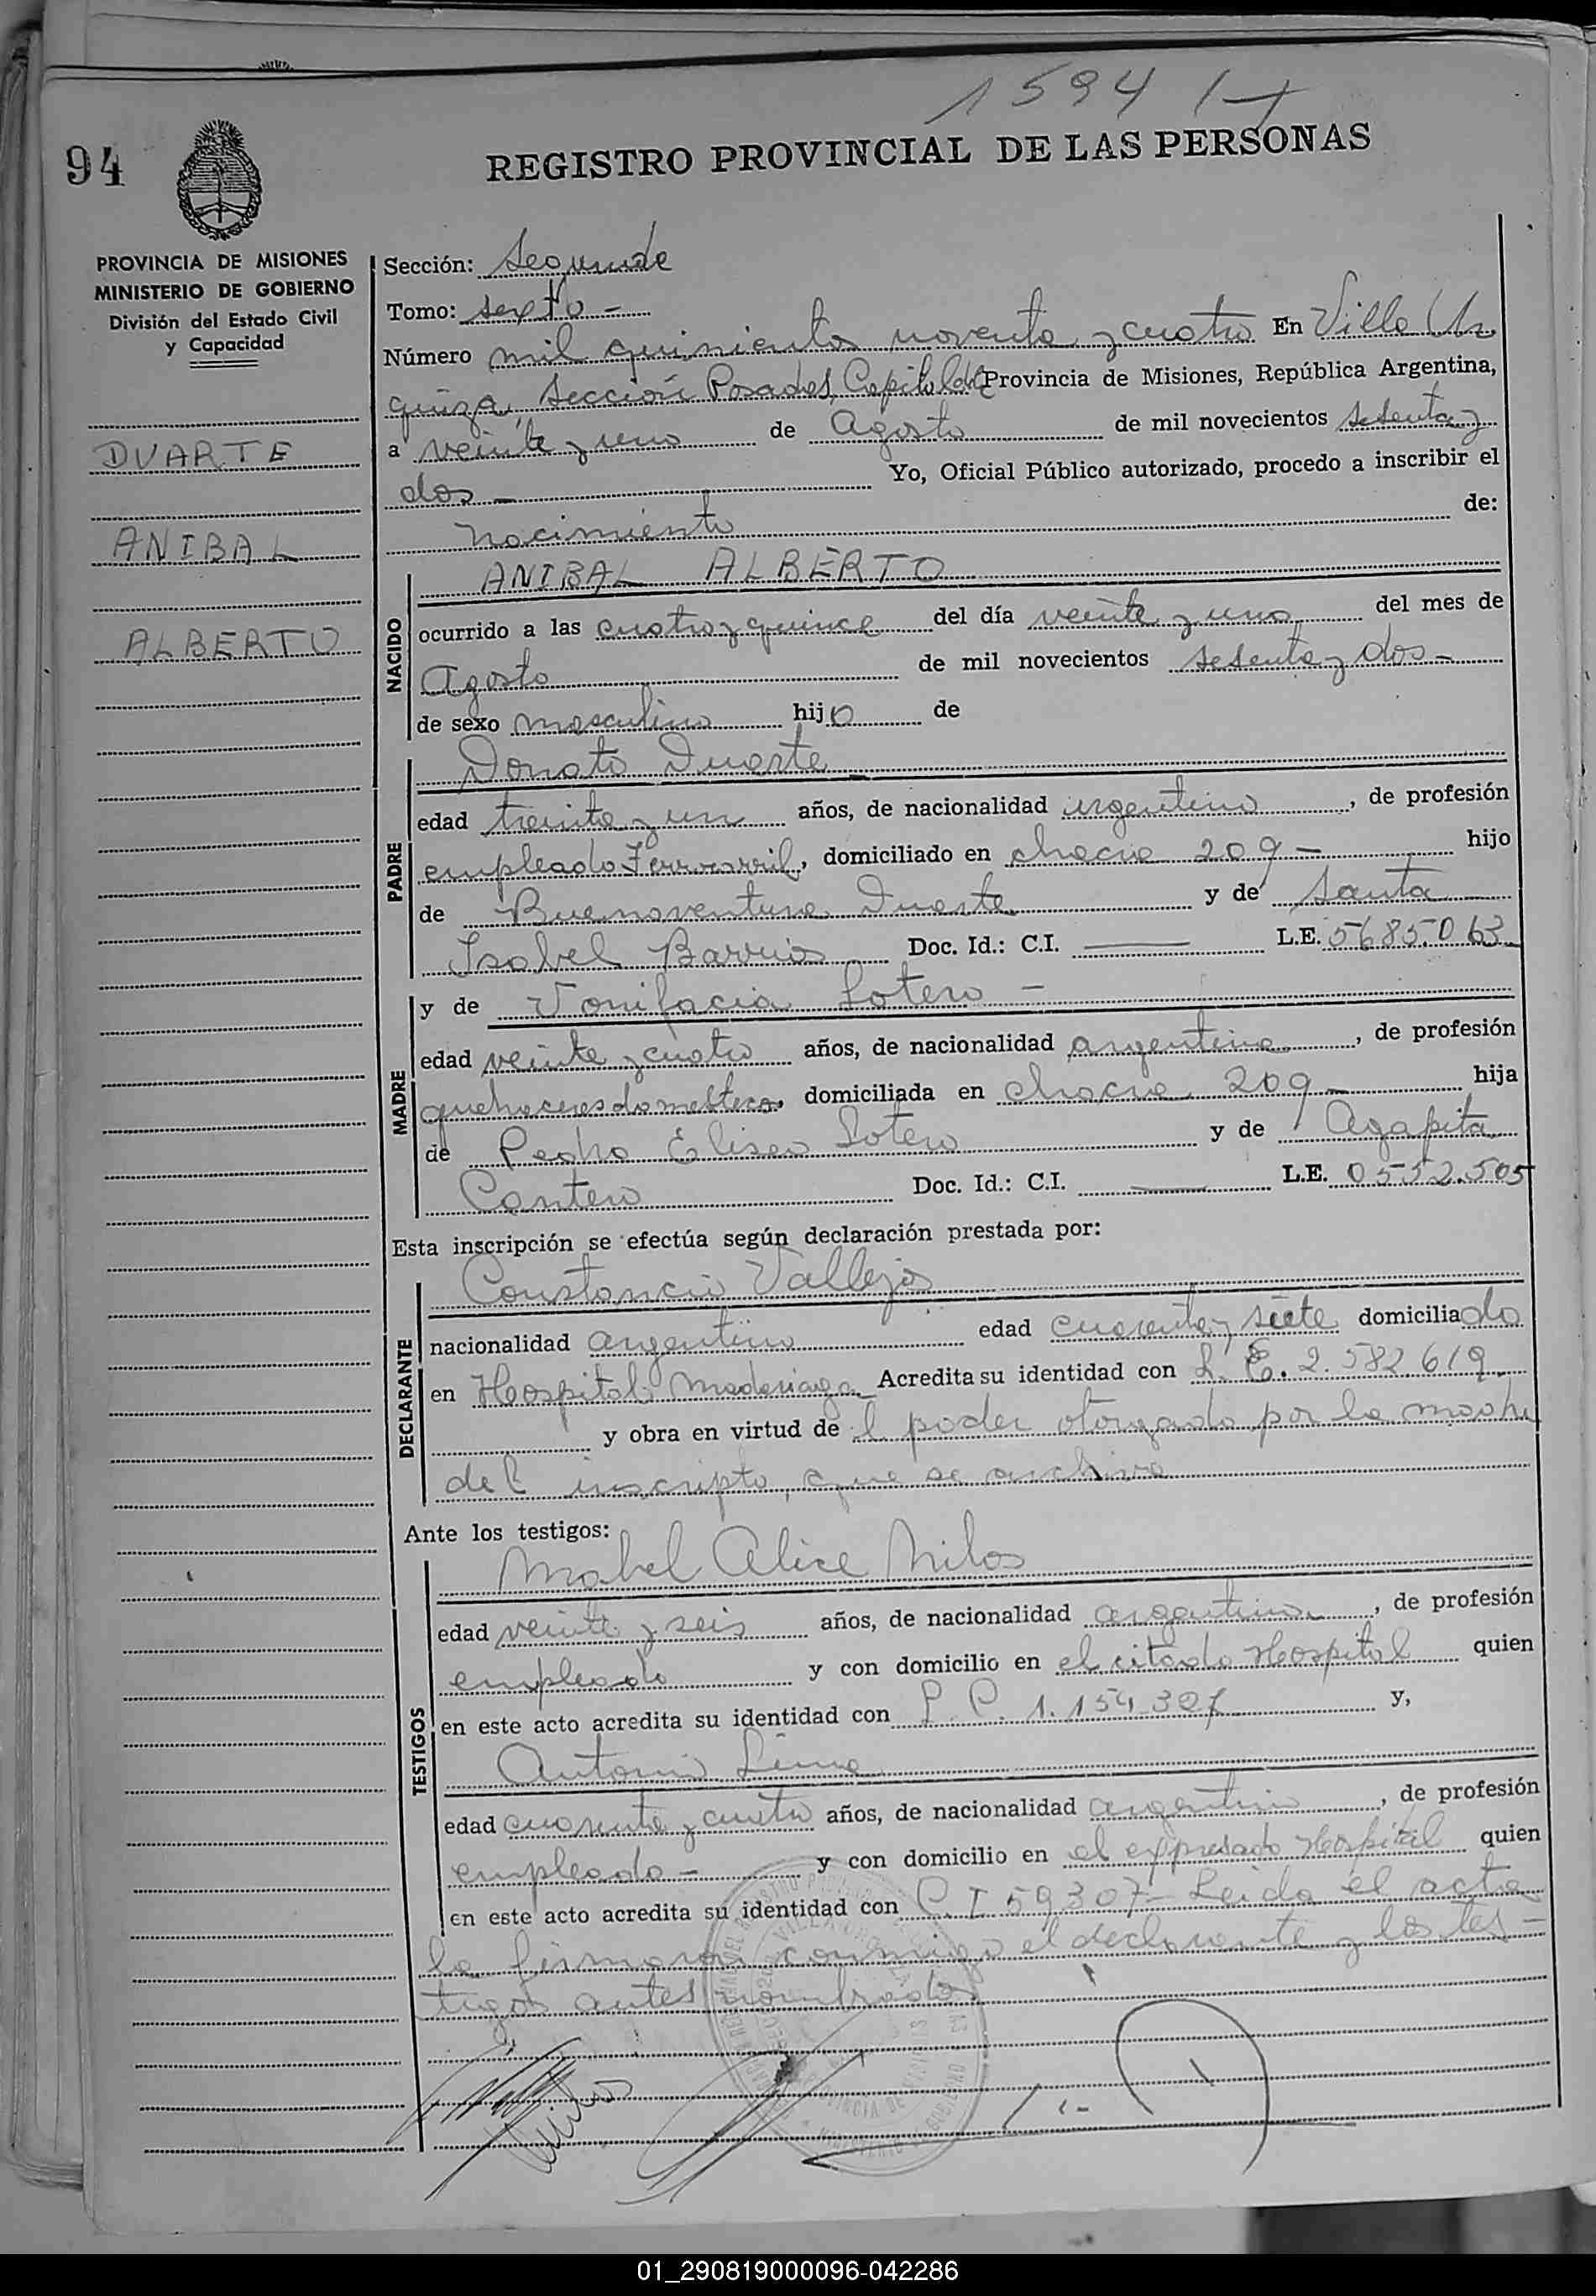 1594
94
REGISTRO PROVINCIAL DE LAS PERSONAS
PROVINCIA DE MISIONES
MINISTERIO DE GOBIERNO
División del Estado Civil
y Capacidad
DUARTE
ANIBAL
ALBERTO
Sección: Segunda
Tomo: sexto -
Número mil quinientos noventa y cuatro En Villa Ur
quiza, Sección Posadas, Capital de Provincia de Misiones, República Argentina,
a veinte y uno de Agosto de mil novecientos setenta y
dos - Yo, Oficial Público autorizado, procedo a inscribir el
nacimiento de:
NACIDO
ANIBAL ALBERTO
ocurrido a las cuatro y quince del día veinte y uno del mes de
Agosto de mil novecientos setenta y dos -
de sexo masculino hijo de
PADRE
Donato Duarte
edad treinta y un años, de nacionalidad argentino, de profesión
empleado Ferrocarril, domiciliado en chacra 209 - hijo
de Buenaventura Duarte y de Santa
Isabel Barrios Doc. Id.: C.I. L.E. 5685.063
MADRE
y de Vonifacia Sotero -
edad veinte y cuatro años, de nacionalidad argentina, de profesión
quehaceres domésticos, domiciliada en chacra 209 - hija
de Pedro Eliseo Sotero y de Agapita
Cantero Doc. Id.: C.I. L.E. 0552.505
Esta inscripción se efectúa según declaración prestada por:
DECLARANTE
Constancio Vallejos
nacionalidad argentino edad cuarenta y siete domiciliado
en Hospital Madariaga Acredita su identidad con L. E. 2.582.619
y obra en virtud del poder otorgado por la madre
del inscripto, que se archiva
Ante los testigos:
TESTIGOS
Mabel Alice Milos
edad veinte y seis años, de nacionalidad argentina, de profesión
empleada y con domicilio en el citado Hospital quien
en este acto acredita su identidad con 1.154.327 y,
Antonio Lima
edad cuarenta y cuatro años, de nacionalidad argentino, de profesión
empleado - y con domicilio en el expresado Hospital quien
en este acto acredita su identidad con C.I. 59.307 - Leida el acta
la firman conmigo el declarante y los tes -
tigos antes nombrados
01_290819000096-042286